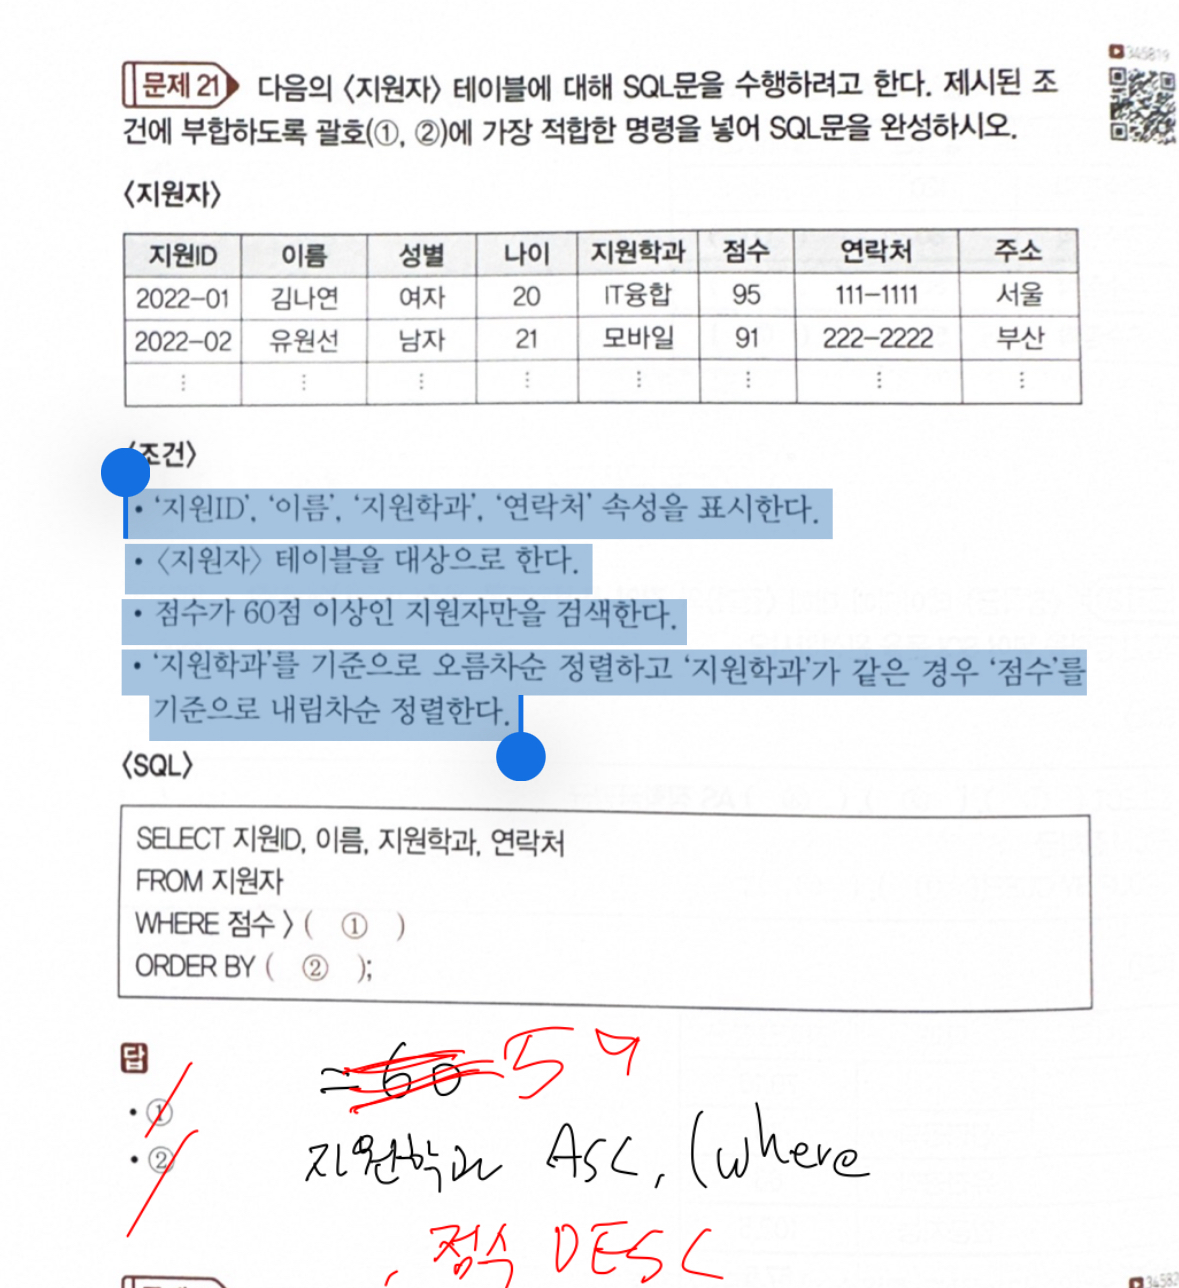 문제 21 다음의 〈지원자〉 테이블에 대해 SQL문을 수행하려고 한다. 제시된 조
건에 부합하도록 괄호(①, ②)에 가장 적합한 명령을 넣어 SQL문을 완성하시오.
345819
〈지원자〉
지원ID 이름 성별 나이 지원학과 점수 연락처 주소
2022-01 김나연 여자 20 IT융합 95 111-1111 서울
2022-02 유원선 남자 21 모바일 91 222-2222 부산
⋮ ⋮ ⋮ ⋮ ⋮ ⋮ ⋮ ⋮
〈조건〉
• ‘지원ID’, ‘이름’, ‘지원학과’, ‘연락처’ 속성을 표시한다.
• 〈지원자〉 테이블을 대상으로 한다.
• 점수가 60점 이상인 지원자만을 검색한다.
• ‘지원학과’를 기준으로 오름차순 정렬하고 ‘지원학과’가 같은 경우 ‘점수’를
기준으로 내림차순 정렬한다.
〈SQL〉
SELECT 지원ID, 이름, 지원학과, 연락처
FROM 지원자
WHERE 점수 > ( ① )
ORDER BY ( ② );
답
• ① =60 59
• ② 지원학과 ASC, (where
, 점수 DESC